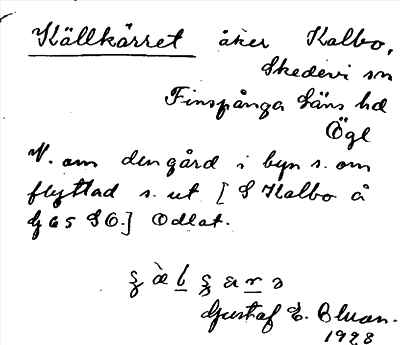 Källkärret åker Kalbo,
Skedevi sn
Finspånga läns hd
Ögl
V. om den gård i byn s. om
flyttad s. ut [ S Kalbo å
G 65 SO.] Odlat.
Gustaf E. Bluan.
1928